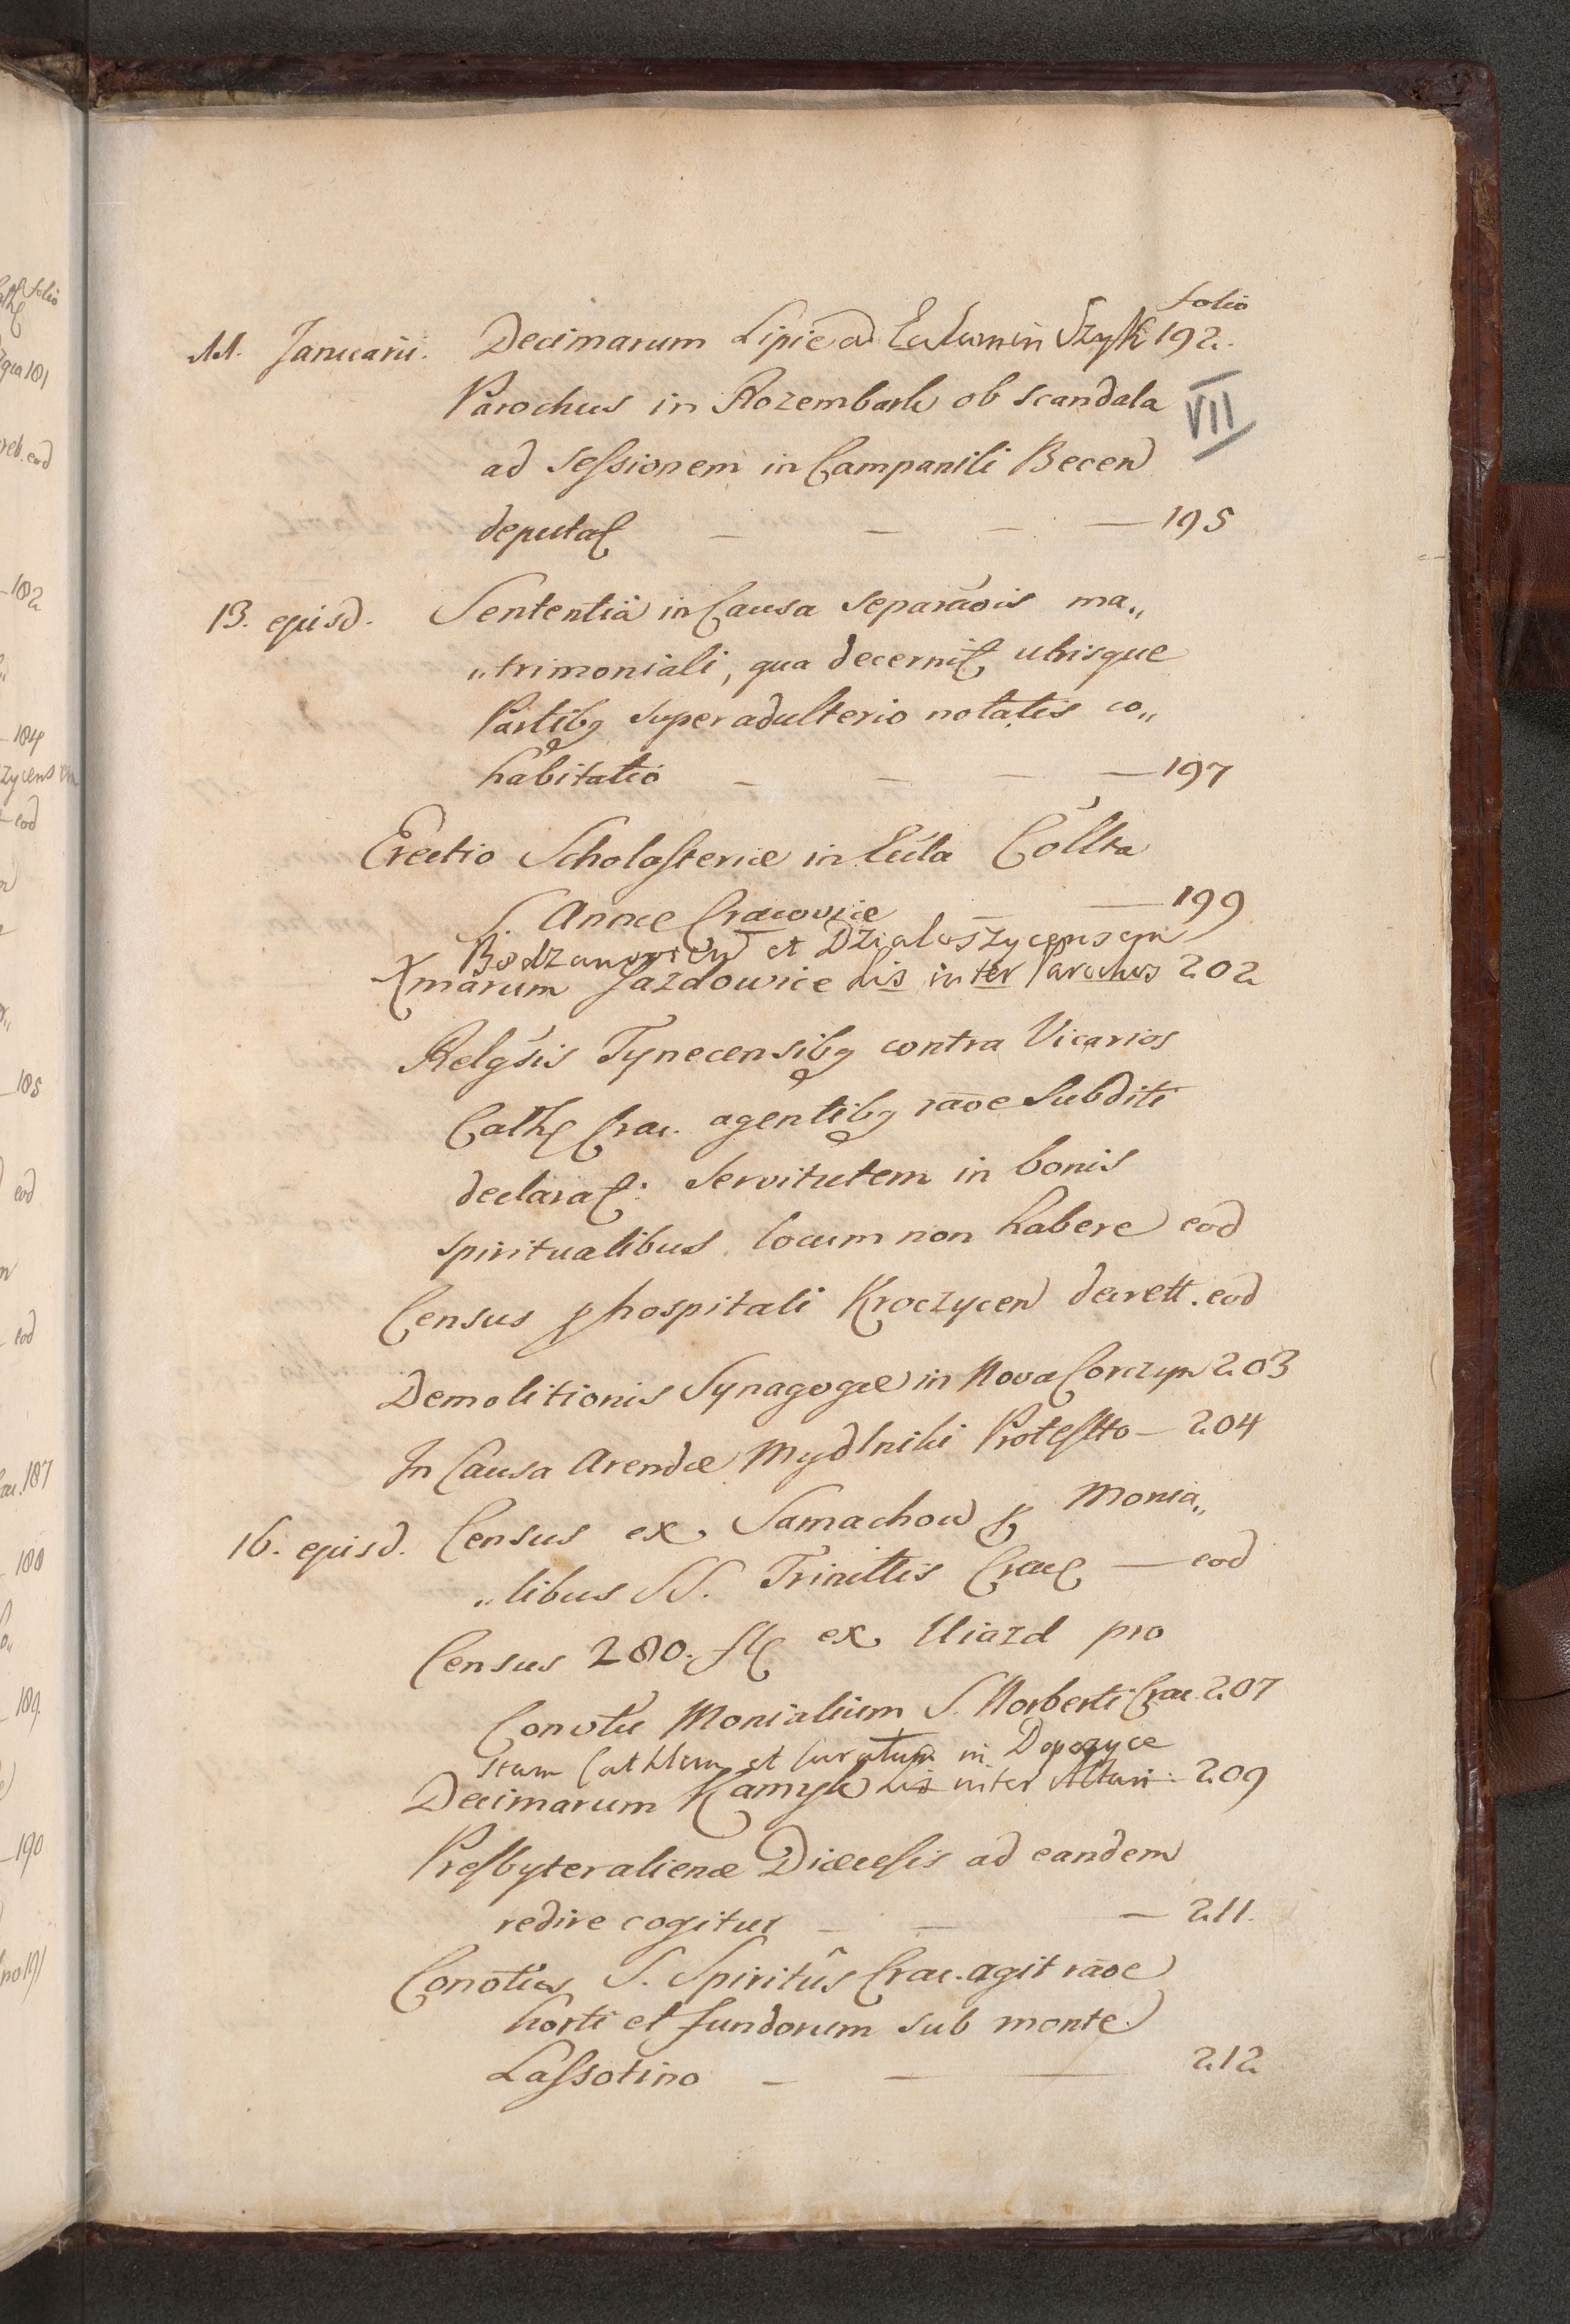 folio
11. Januarii. Decimarum Lipie ad Eccl[...]m in Szyk 192.
VII
Parochus in Rozembark ob scandala
ad sessionem in Campanili Becen
deputat — — — — 195
13. ejusd. Sententia in Causa separãois ma„
„trimoniali, qua decernit utrisque
Partibq super adulterio notatis co„
habitatio — — — — 197
Erectio Scholasteriæ in Eccla Collta
S. Annæ Cracoviæ — — 199
Bodzanovien et Dzialoszycensem
Xmarum Jazdowice Lis inter Parochos 202
Relgsis Tynecensibq contra Vicarios
Cath Crac. agentibq rãoe Subditi
declarat: Servitutem in bonis
spiritualibus locum non habere eod
Census p hospitali Kroczycen decrett. eod
Demolitionis Synagogæ in Nova Corczyn 203
In Causa Arendæ Mydlniki Protestto — 204
16. ejusd. Census ex Samachow p Monia„
„libus SS. Trinittis Crac — eod
Census 280. fl ex Uiazd pro
Convtu Monialium S. Norberti Crac. 207
stam Cathlem et Curatum in Dopozyce
Decimarum Kamyk Lis inter Altari: 209
Presbyter alienæ Diœcesis ad eandem
redire cogitur — — — 211.
Conotus S. Spiritûs Crac. agit rãoe
horti et fundorum sub monte
Lassotino — — — 212